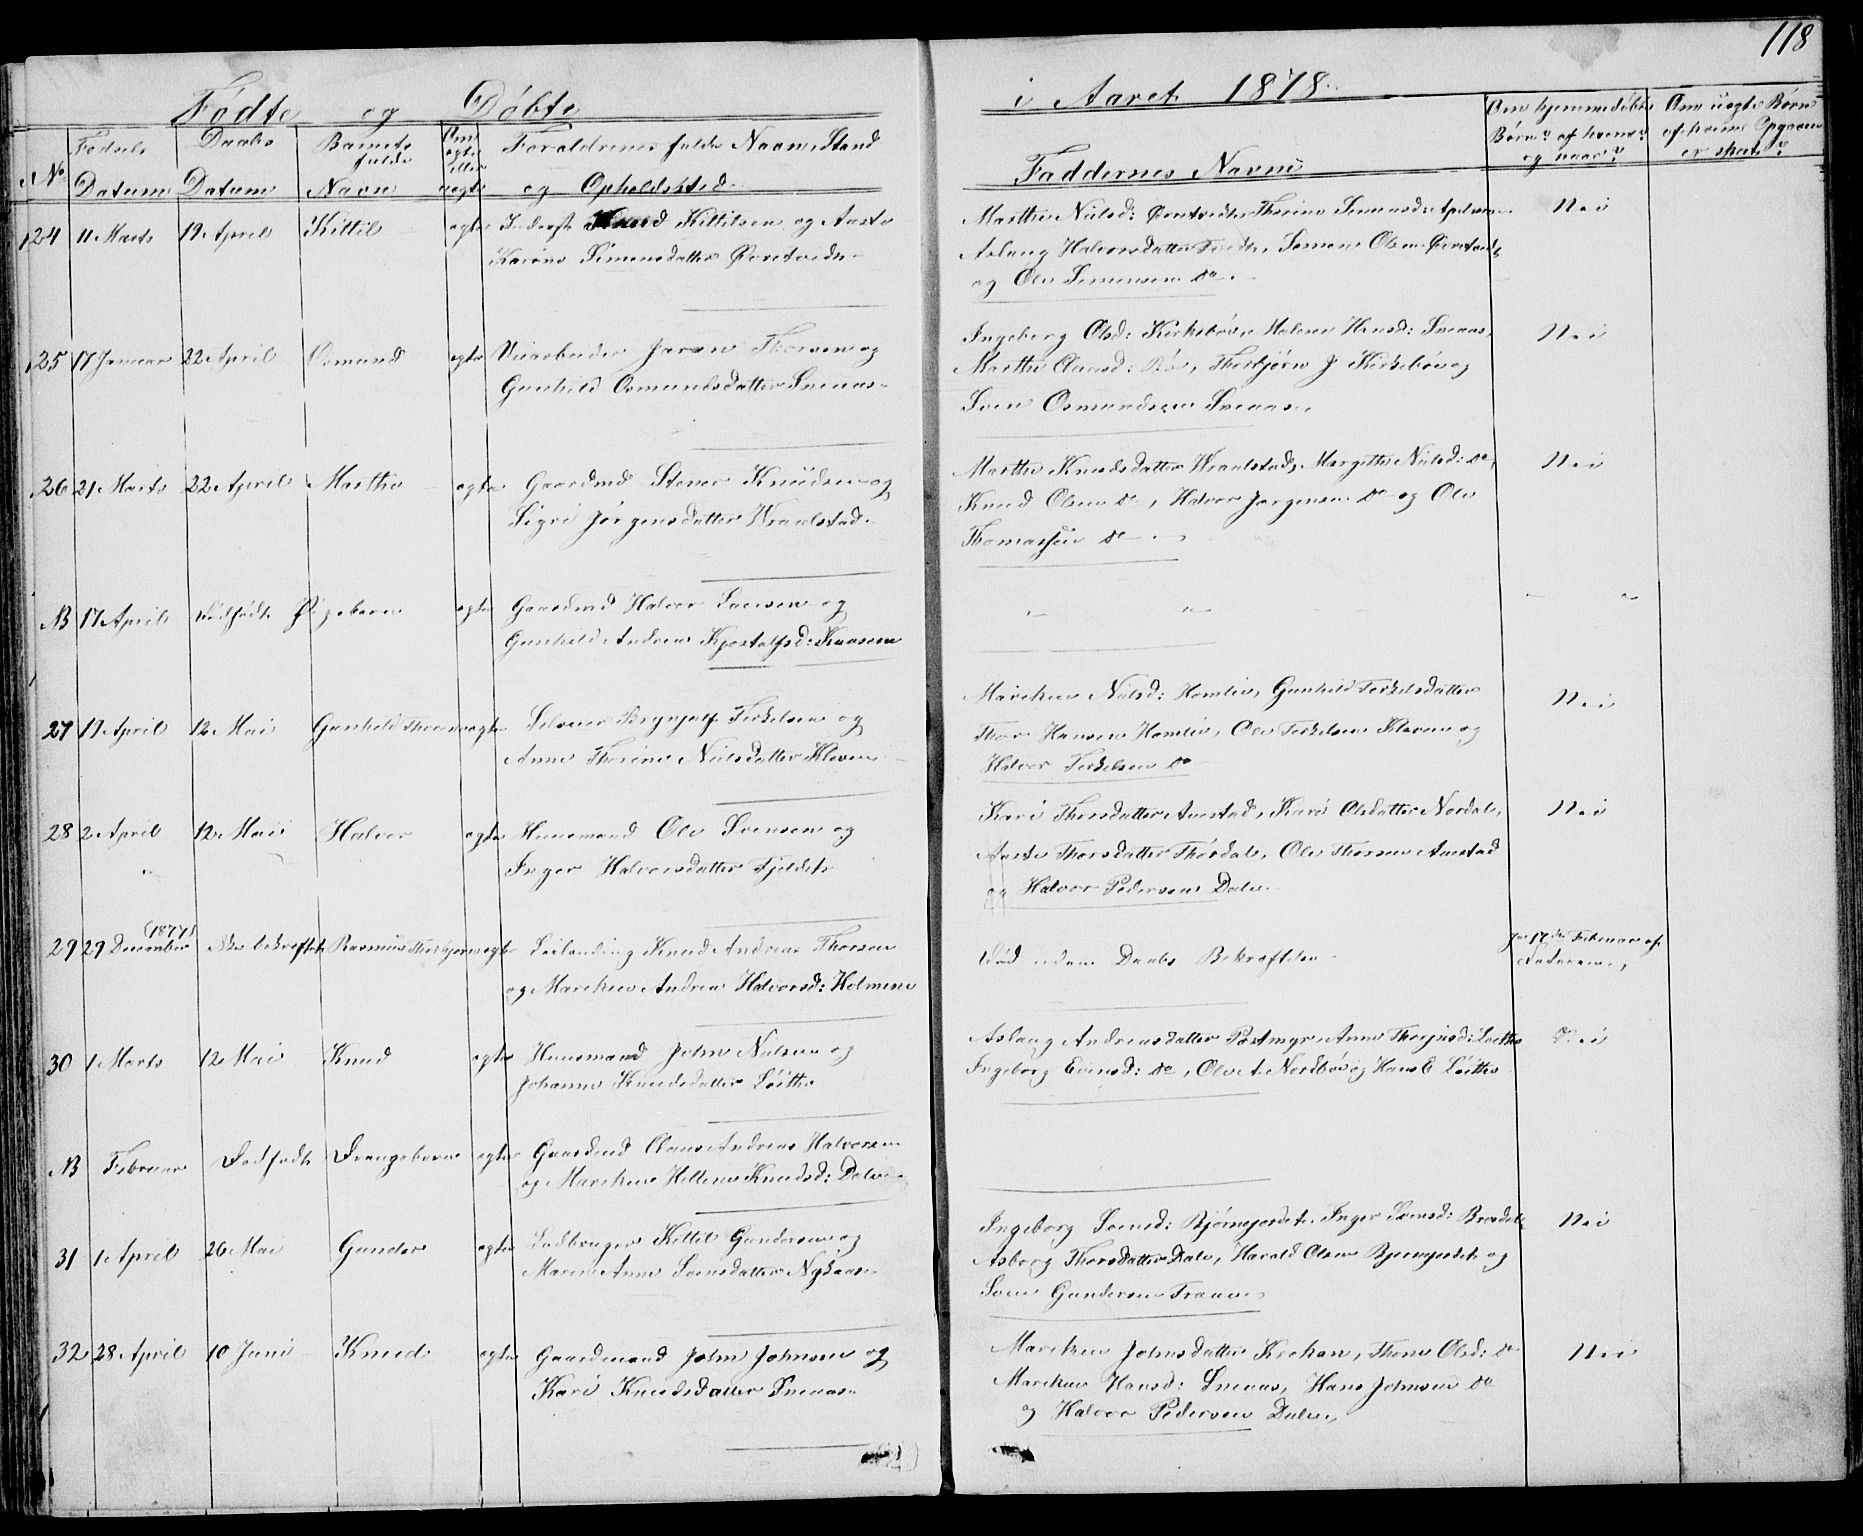 118
Fødte og Døbte i Aaret 1878.
No
Fødsels Datum
Daabs Datum
Barnets fulde Navn
Om ægte eller uægte
Forældrenes fulde Navn, Stand
og Opholdssted.
Faddernes Navne
Om hjemmedøbte
Børn? af hvem?
og naar?
Om uægte Børn
af hvem Opgaven
er skeet?
124 11 Marts 19 April Kittil ægte Knud Kittilsen og Aaste
Karine Simensdatter
Marthe Nielsd: Thorine Simensd:
Aslaug Halvorsdatter Simen Olsen
og Ole Simensen do.
Nei
125 17 Januar 22 April Osmund ægte Veiarbeider Jaran Thorsen og
Gunhild Osmundsdatter Sneaas
Ingeborg Olsd: Kirkebøe, Malene Hansd: Sneaas,
Marthe Clausd: Thorbjørn J Kirkebøe og
Sven Osmundsen Sneaas.
Nei
26 21 Marts 22 April Marthe ægte Gaardmd Stener Knudsen og
Sigri Jørgensdatter Vraalstad.
Marthe Knudsdatter Vraalstad, Margithe Nielsd: do,
Knud Olsen do, Halvor Jørgensen do og Ole
Thomassen do
Nei
NB 17 April Dødfødt Pigebarn ægte Gaardmd Halvor Larsen og
Gunhild Andrea Kjostolfsd: Kaasene
" " " "
27 17 April 12 Mai Gunhild Thorine ægte Selveier Brynjulf Terkelsen og
Anne Thorine Nielsdatter Kleven
Mariken Nielsd: Homlie, Gunhild Terkelsdatter
Thor Hansen Homlie, Ole Terkelsen Kleven og
Halvor Terkelsen do
Nei
28 2 April 12 Mai Halvor ægte Huusmand Ole Svensen og
Inger Halvorsdatter Fjeldet
Kari Thorsdatter Aanstad, Kari Olsdatter Nordal,
Aaste Thorsdatter Thordal, Ole Thorsen Aanstad
og Halvor Pedersen Dale.
Nei
(1877)
29 29 December Ikke bekræftet Rasmus Thorbjørn ægte Leilending Knud Andreas Thorsen
og Mariken Andrea Halvorsd: Holmene
Død uden Daabs Bekræftelse
Ja 17de Februar af
Faderen,
30 1 Marts 12 Mai Knud ægte Huusmand John Nielsen og
Johanne Knudsdatter Løithe
Aslaug Andreasdatter Postmyr Anne Therjusd: Løithe
Ingeborg Evensd: do, Ole A. Nordbøe og Hans E Løithe
Nei
NB Februar Dødfødt Drengebarn ægte Gaardmd Claus Andreas Halvorsen
og Mariken Hellene Knudsd: Dale
31 1 April 26 Mai Gunder ægte Kittil Gundersen og
Maren Anne Svensdatter Nykaas
Ingeborg Svensd: Bjørnejordet, Inger Svensd:
Asborg Thorsdatter Dale, Harald Olsen Bjørnejordet og
Sven Gundersen Traaen
Nei
32 28 April 10 Juni Knud ægte Gaardmand John Johnsen og
Kari Knudsdatter Sneaas
Mariken Johnsdatter Krokan, Thone Olsd: do
Mariken Hansd: Sneaas, Hans Johnsen do
og Halvor Pedersen Dale,
Nei